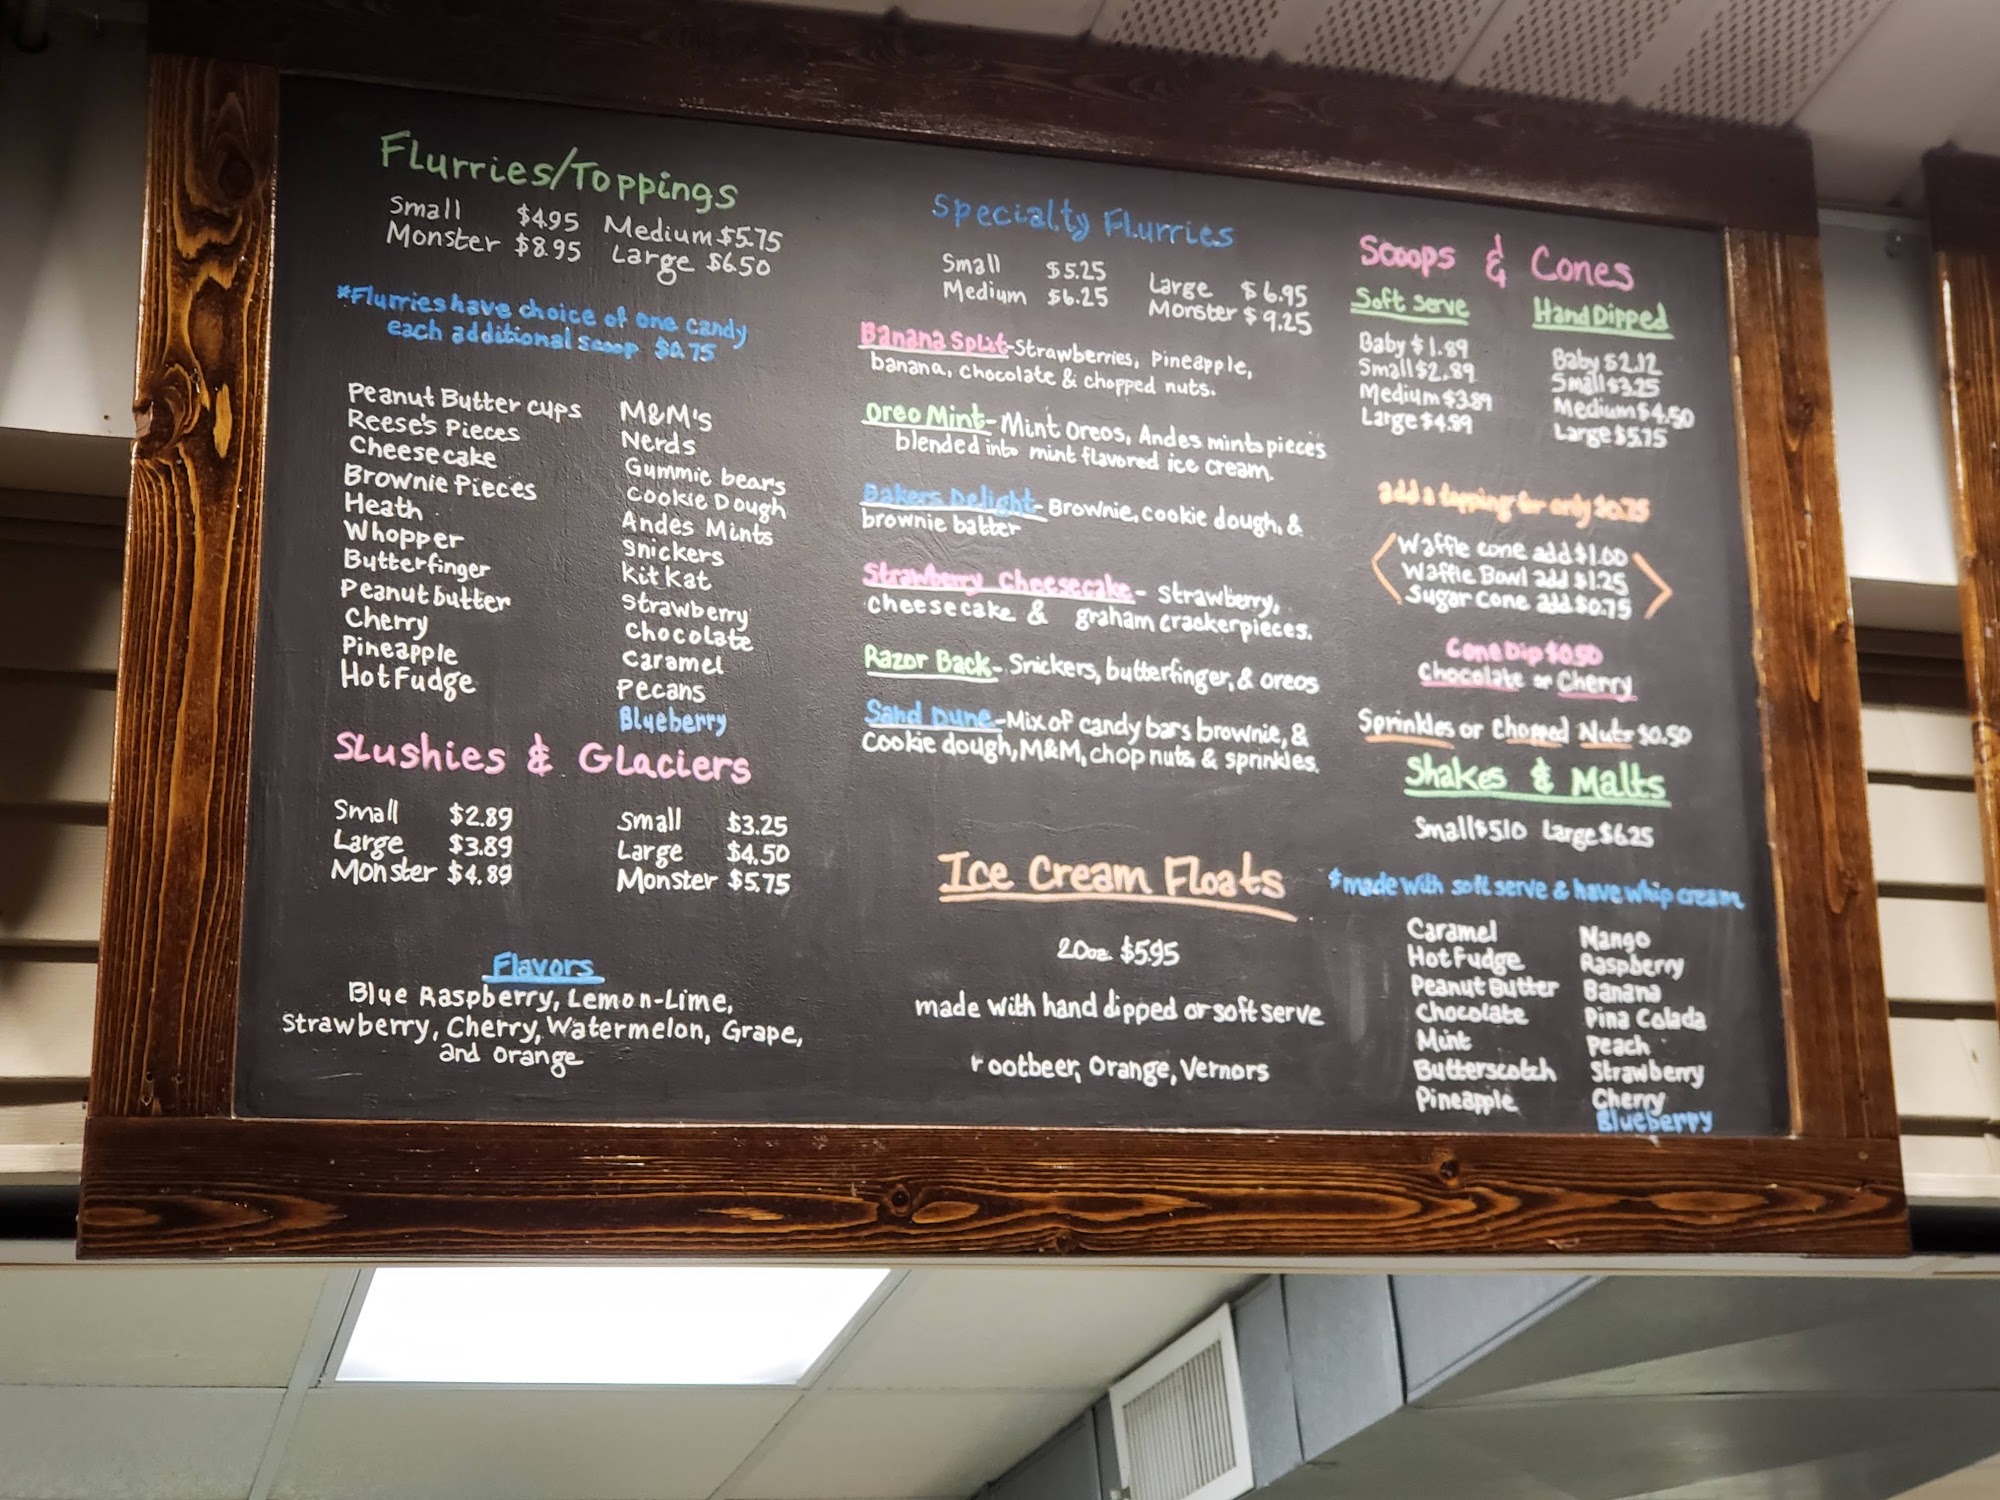 Flurries/Toppings
Small $4.95 Medium $5.75
Monster $8.95 Large $6.50
*Flurries have choice of one candy
each additional scoop $0.75
Peanut Butter cups
Reese's Pieces
Cheesecake
Brownie Pieces
Heath
Whopper
Butterfinger
Peanut butter
Cherry
Pineapple
Hot Fudge
M&M's
Nerds
Gummie bears
Cookie Dough
Andes Mints
Snickers
Kit Kat
Strawberry
Chocolate
Caramel
Pecans
Blueberry
Slushies & Glaciers
Small $2.89
Large $3.89
Monster $4.89
Small $3.25
Large $4.50
Monster $5.75
Flavors
Blue Raspberry, Lemon-Lime,
Strawberry, Cherry, Watermelon, Grape,
and orange
Specialty Flurries
Small $5.25 Large $6.95
Medium $6.25 Monster $9.25
Banana Split-Strawberries, Pineapple,
banana, chocolate & chopped nuts.
Oreo Mint-Mint Oreos, Andes mints pieces
blended into mint flavored ice cream.
Bakers Delight-Brownie, cookie dough, &
brownie batter
Strawberry Cheesecake- strawberry,
cheesecake & graham cracker pieces.
Razor Back- Snickers, butterfinger, & oreos
Sand Dune-Mix of candy bars brownie, &
Cookie dough, M&M, chop nuts & sprinkles.
Ice Cream Floats
20oz $5.95
made with hand dipped or soft serve
rootbeer, Orange, Vernors
Scoops & Cones
Soft Serve
Baby $1.89
Small $2.89
Medium $3.89
Large $4.89
Hand Dipped
Baby $2.12
Small $3.25
Medium $4.50
Large $5.75
add a topping for only $0.75
Waffle cone add $1.00
Waffle Bowl add $1.25
Sugar Cone add $0.75
Cone Dip $0.50
Chocolate or Cherry
Sprinkles or Chopped Nuts $0.50
Shakes & Malts
Small $5.10 Large $6.25
*made with soft serve & have whip cream
Caramel
Hot Fudge
Peanut Butter
Chocolate
Mint
Butterscotch
Pineapple
Mango
Raspberry
Banana
Pina Colada
Peach
Strawberry
Cherry
Blueberry